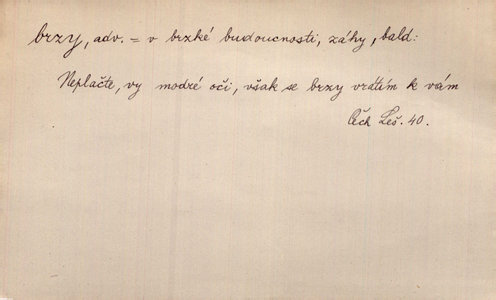 brzy, adv. = v brzké budoucnosti, záhy, bald:
Neplačte, vy modré oči, však se brzy vrátím k vám
Čech Leš. 40.